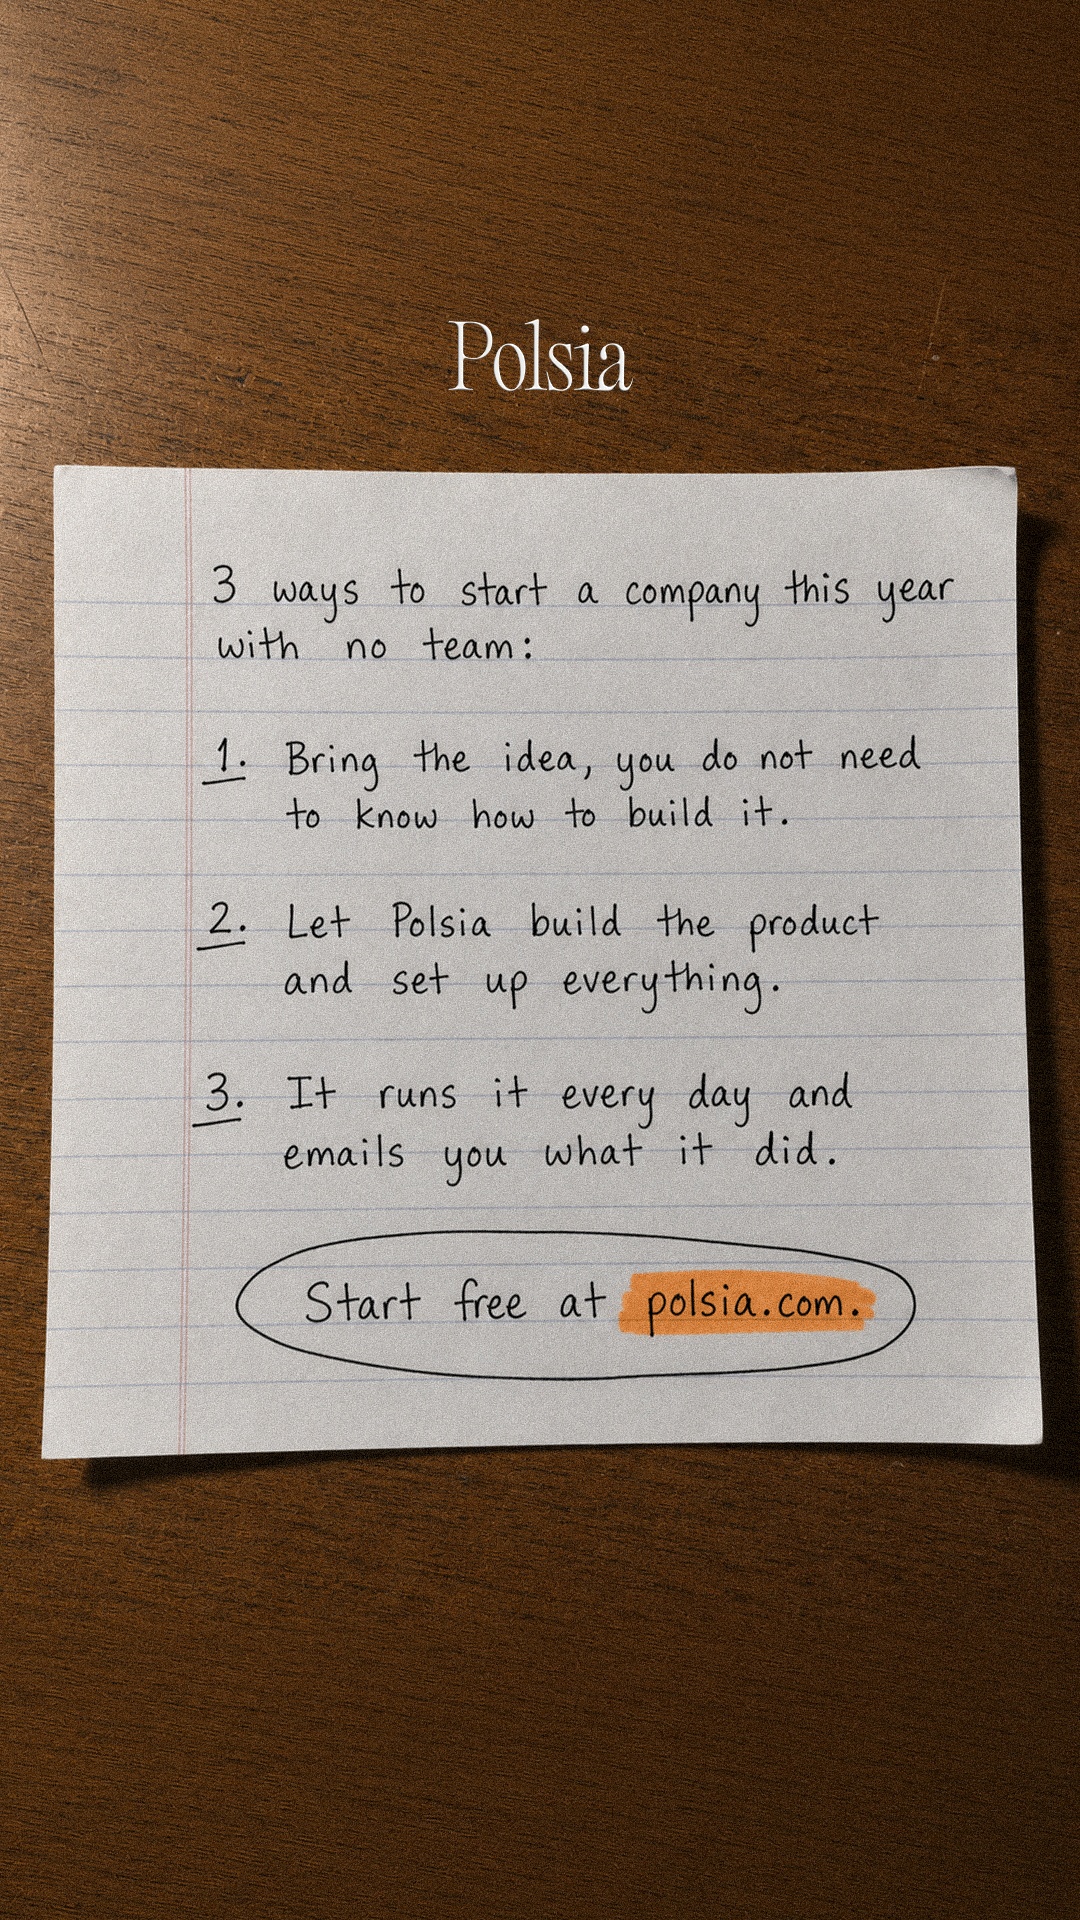 Polsia
3 ways to start a company this year
with no team:
1. Bring the idea, you do not need
to know how to build it.
2. Let Polsia build the product
and set up everything.
3. It runs it every day and
emails you what it did.
Start free at polsia.com.